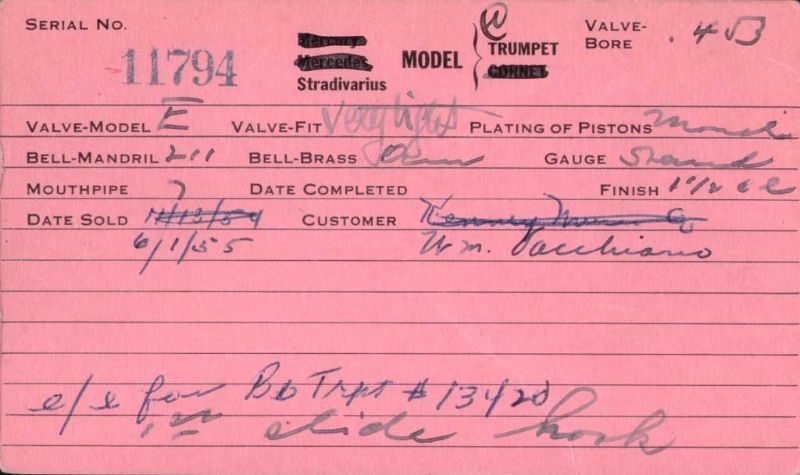 SERIAL NO. 11794
Mercury
Mercedes
Stradivarius
MODEL { C TRUMPET
CORNET
VALVE-BORE .453
VALVE-MODEL E VALVE-FIT Very light PLATING OF PISTONS Monel
BELL-MANDRIL 211 BELL-BRASS GAUGE Stand
MOUTHPIPE 7 DATE COMPLETED FINISH
DATE SOLD 11/13/54 CUSTOMER
6/1/55 Wm. Vacchiano
e/e for Bb Trpt # 13420
1st slide hook